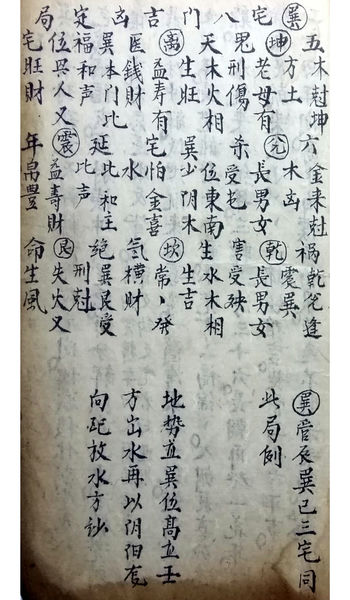 巽宅八門吉凶定局
五木尅坤六金来尅禍乾兌逢
坤方土兌木凶震巽
老母有長男女乾長男女
鬼刑傷杀受乞害受殃
天木火相位東南生水木相
離生旺巽少阴木坎生吉
益寿有宅怕金喜常丶發
医錢財水氣横財
巽本門比延比和主絕巽艮受
福和声震比声刑尅
位異人又益壽財艮失火又
宅旺財年帛豐命生風
巽管辰巽巳三宅同
此局例
地勢直巽位高立壬
方出水再以阴阳
向配放水方訣